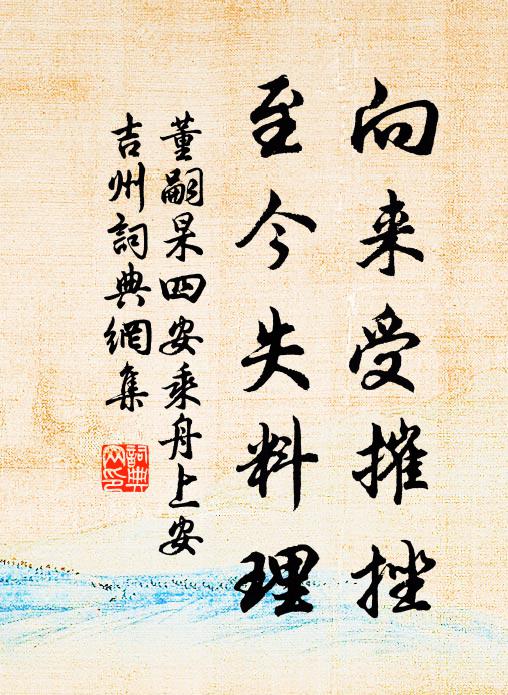 向来受摧挫
至今失料理
董嗣杲四安乘舟上安
吉州詞典網集
詞典網印